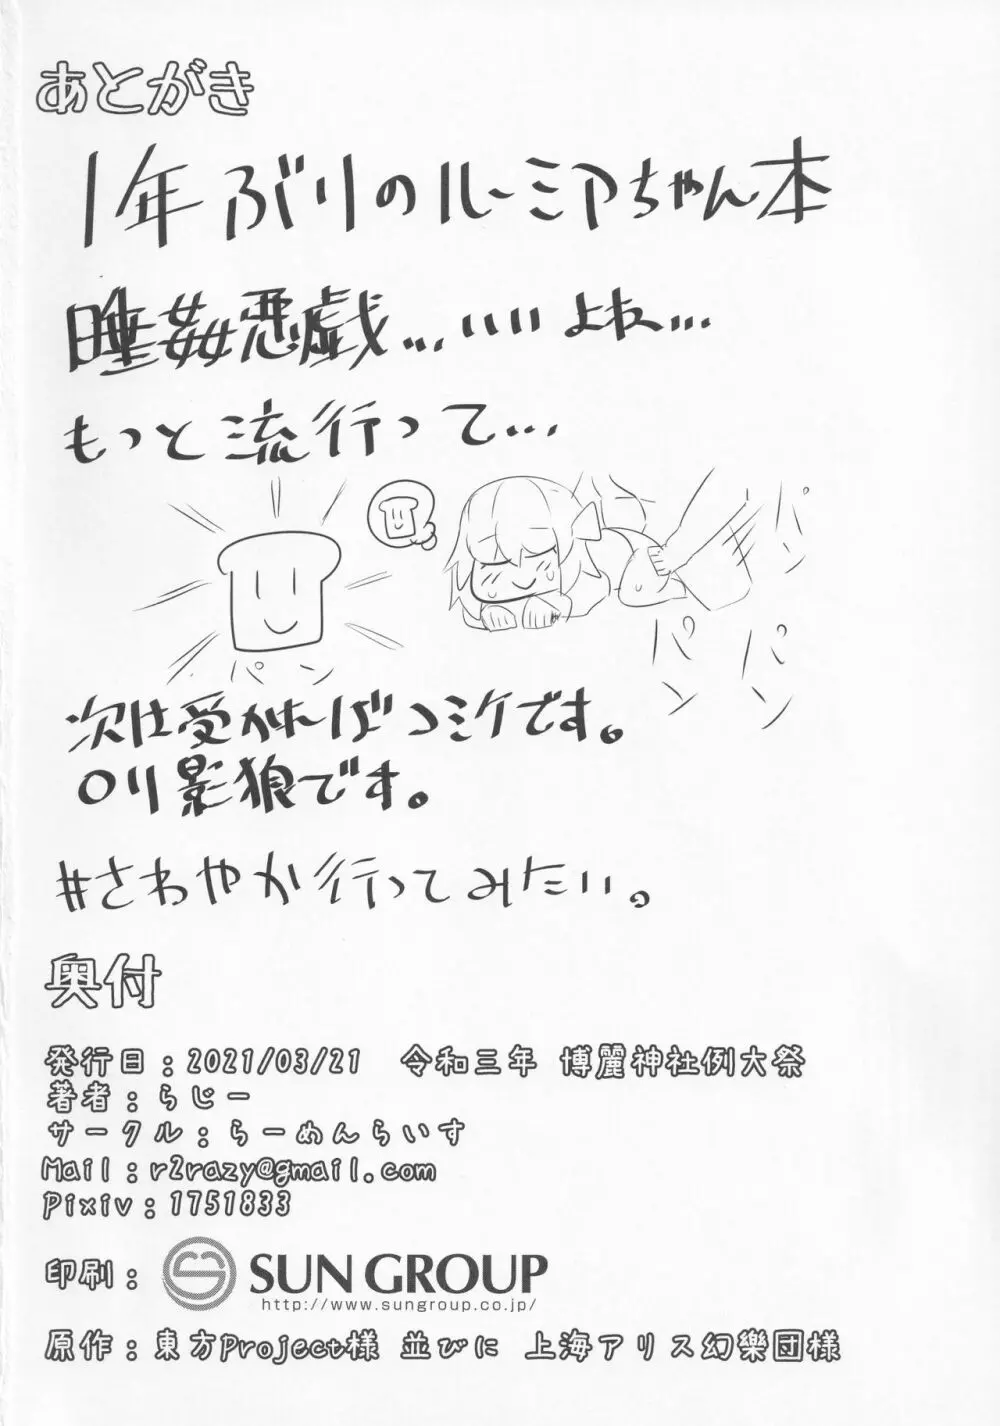 あとがき
1年ぶりのルーミアちゃん本
睡姦悪戯...いいよね...
もっと流行って...
パン
パンパン
パン
パン
次は受かればコミケです。
ロリ影狼です。
#さわやか行ってみたい。
奥付
発行日：2021/03/21 令和三年 博麗神社例大祭
著者：らじー
サークル：らーめんらいす
Mail：r2razy@gmail.com
Pixiv：1751833
印刷：SUN GROUP
http://www.sungroup.co.jp/
原作：東方Project様 並びに 上海アリス幻樂団様